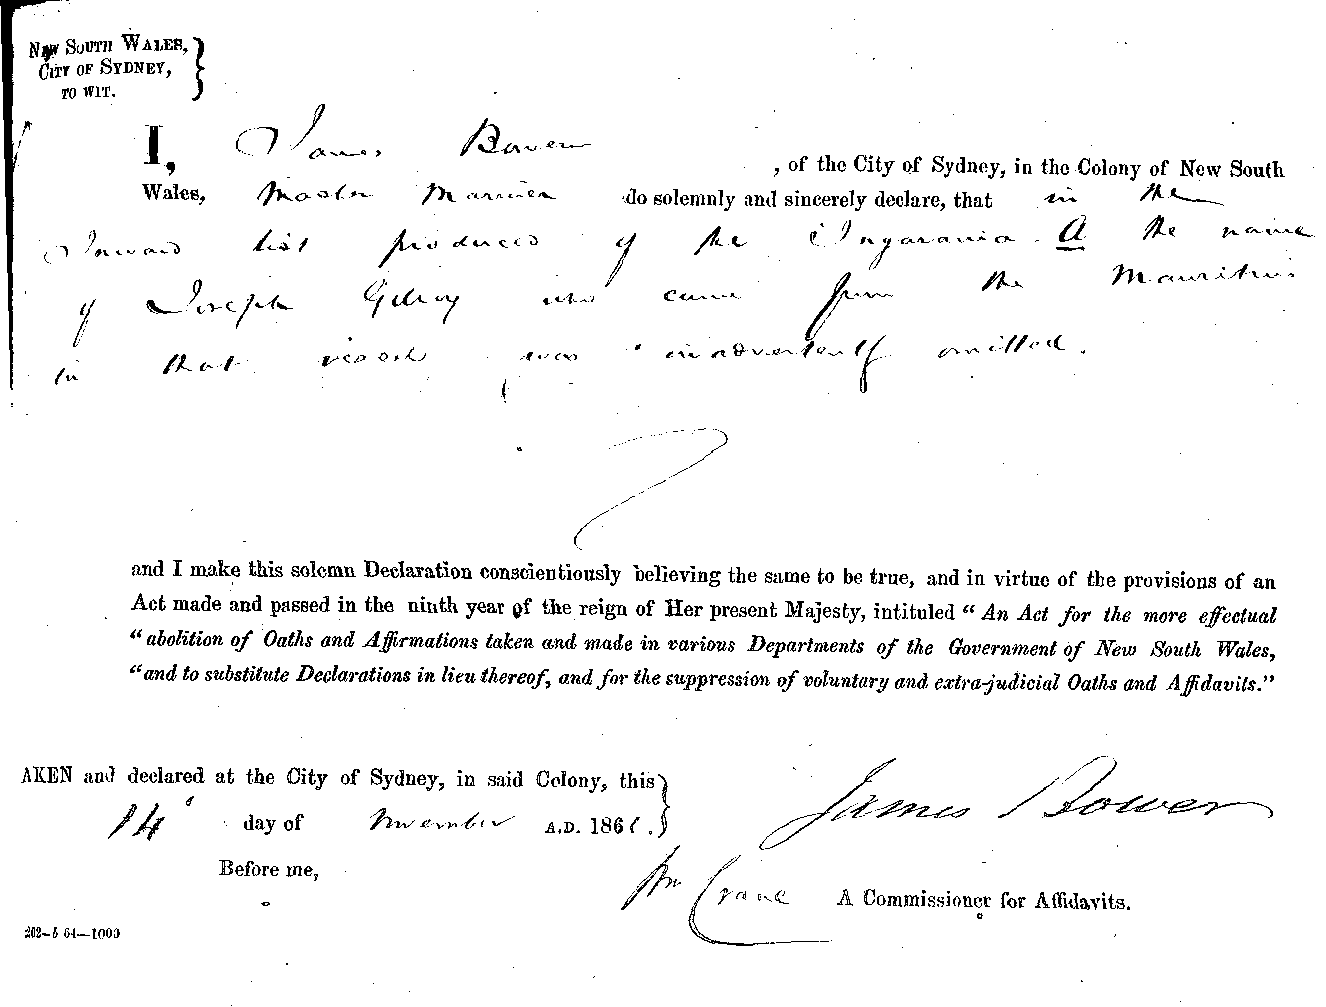 NEW SOUTH WALES,
CITY OF SYDNEY,
TO WIT.
I, James Bower , of the City of Sydney, in the Colony of New South
Wales, Master Mariner do solemnly and sincerely declare, that in the
Inward list produced of the A the name
of Joseph Gilroy who came from the Mauritius
in that vessel was inadvertently omitted.
and I make this solemn Declaration conscientiously believing the same to be true, and in virtue of the provisions of an
Act made and passed in the ninth year of the reign of Her present Majesty, intituled “ An Act for the more effectual
“ abolition of Oaths and Affirmations taken and made in various Departments of the Government of New South Wales,
“ and to substitute Declarations in lieu thereof, and for the suppression of voluntary and extra-judicial Oaths and Affidavits.”
AKEN and declared at the City of Sydney, in said Colony, this
14 day of November A.D. 186
James Bower
Before me,
Wm Crane A Commissioner for Affidavits.
202—5 64—1000